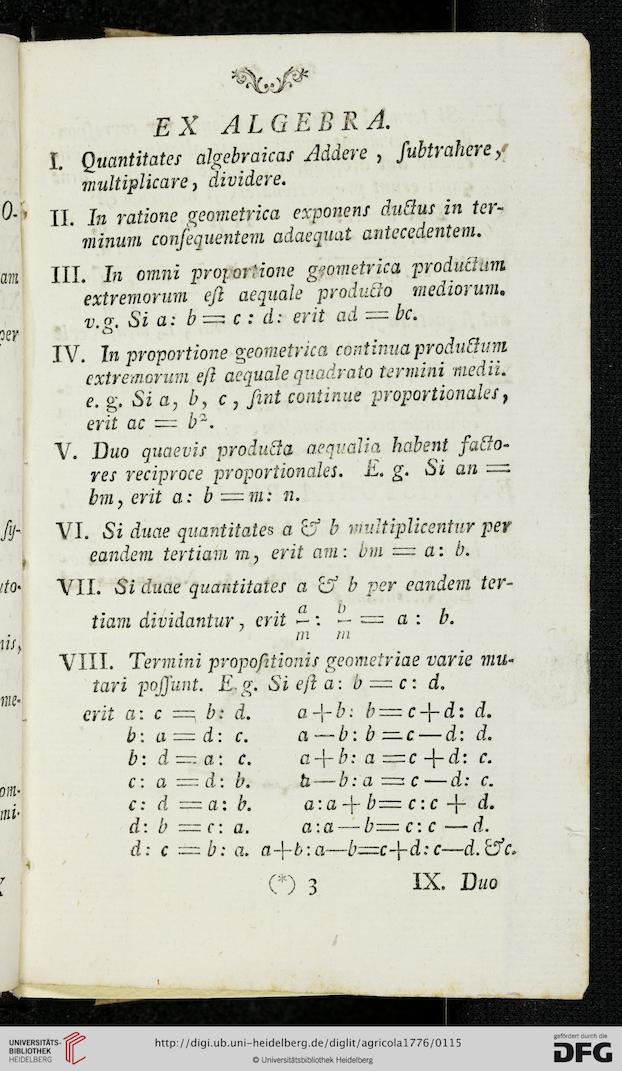 EX ALGEBRA.
I. Quantitates algebraicas Addere , ſubtrahere,
multiplicare, dividere.
II. In ratione geometrica exponens ductus in ter-
minum conſequentem adaequat antecedentem.
III. In omni proportione geometrica productum
extremorum eſt aequale producto mediorum.
v.g. Si a: b = c : d: erit ad = bc.
IV. In proportione geometrica continua productum
extremorum eſt aequale quadrato termini medii.
e. g. Si a, b, c, ſint continue proportionales,
erit ac = b².
V. Duo quaevis producta aequalia habent facto-
res reciproce proportionales. E. g. Si an =
bm, erit a: b = m: n.
VI. Si duae quantitates a & b multiplicentur per
eandem tertiam m, erit am: bm = a: b.
VII. Si duae quantitates a & b per eandem ter-
tiam dividantur, erit a/m : b/m = a : b.
VIII. Termini propoſitionis geometriae varie mu-
tari poſſunt. E. g. Si eſt a: b = c: d.
erit a: c = b: d. a + b: b = c + d: d.
b: a = d: c. a — b: b = c — d: d.
b: d = a: c. a + b: a = c + d: c.
c: a = d: b. a — b: a = c — d: c.
c: d = a: b. a: a + b = c: c + d.
d: b = c: a. a: a — b = c: c — d.
d: c = b: a. a + b: a — b = c + d: c — d. &c.
(*) 3 IX. Duo
O-
am
per
ſy-
nis,
me-
om-
mi-
UNIVERSITÄTS-
BIBLIOTHEK
HEIDELBERG
http://digi.ub.uni-heidelberg.de/diglit/agricola1776/0115
© Universitätsbibliothek Heidelberg
gefördert durch die
DFG